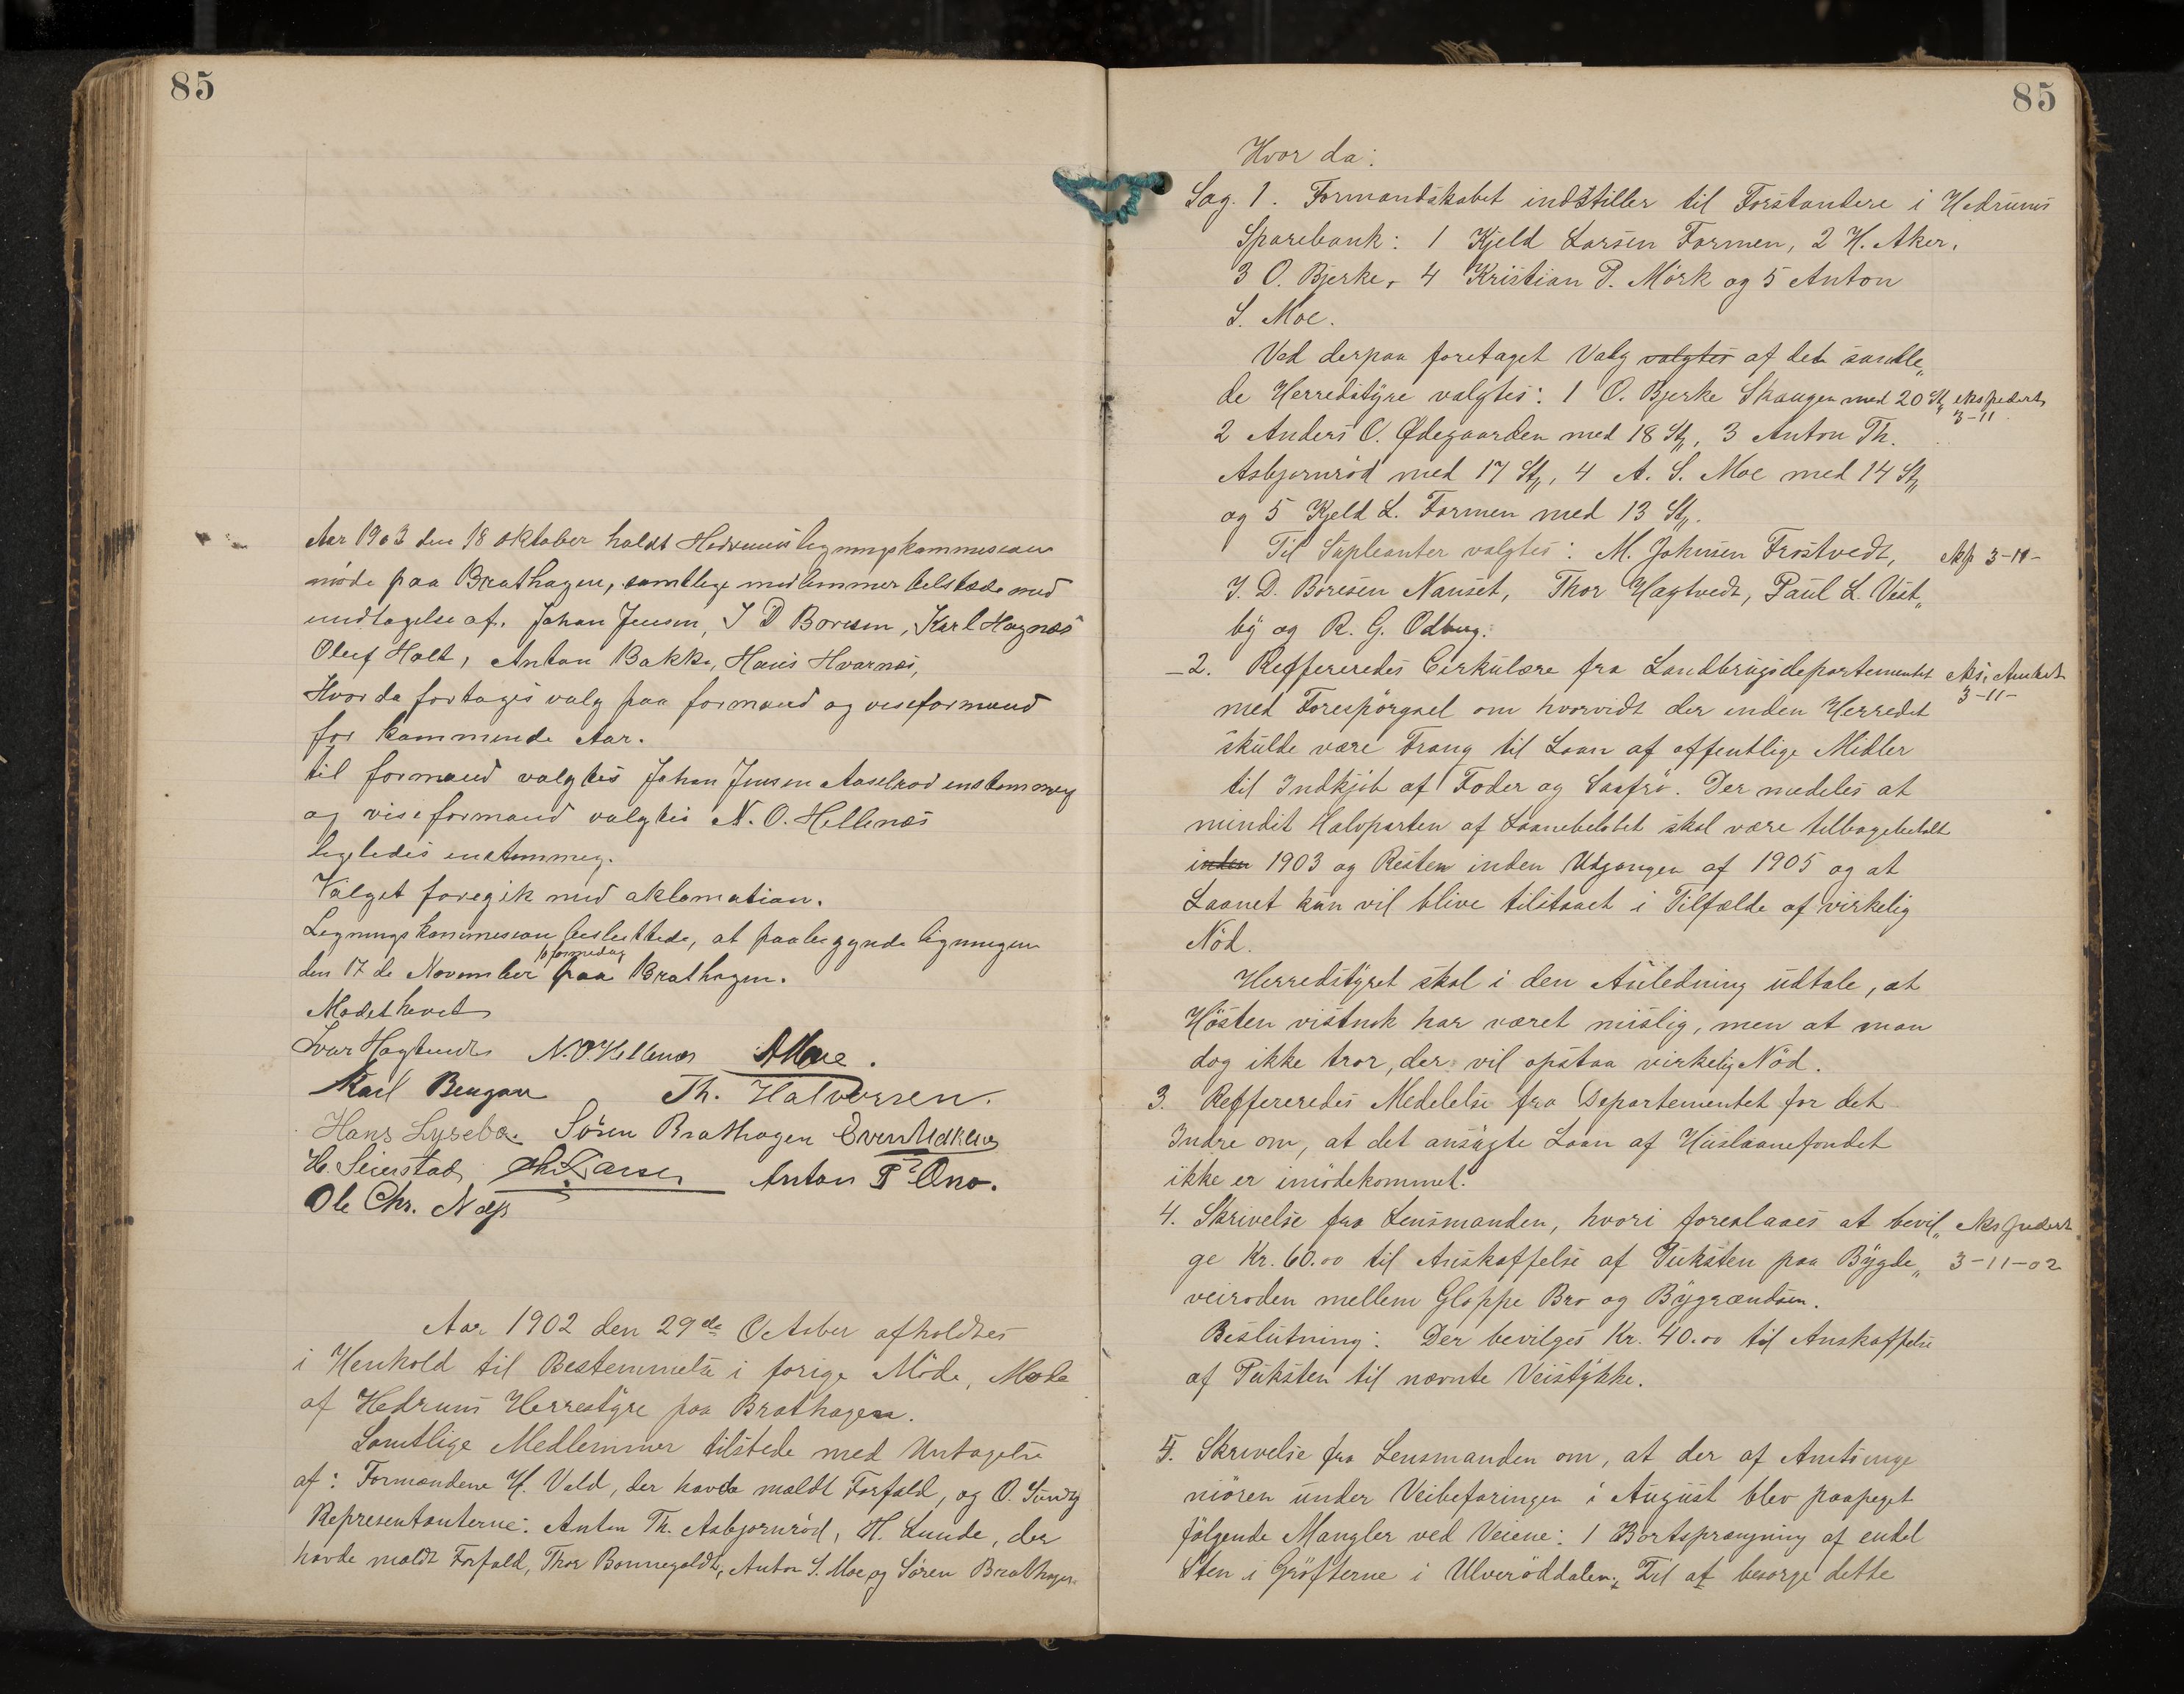 85
Aar 1903 den 18 oktober holdt Hedrums ligningskommission
møde paa Brathagen, samtlige medlemmer tilstede med
undtagelse af. Johan Jensen, J D Boresen, Karl Hagnæs
Oluf Holt, Anton Bakke, Hans Hvarnæs,
Hvor da fortages valg paa formand og viseformand
for kommende Aar.
til formand valgtes Johan Jensen Aaselrod enstemmig
og viseformand valgtes N. O. Hellenæs
ligeledes enstemmig.
Valget foregik med aklamation.
Legningskommission besluttede, at paabegynde ligningen
formedag
den 17 de November paa Brathagen.
Mødet hævet
Ivar Hagtvedt N. O. Hellenæs AMoe.
Karl Th. Halvorsen.
Hans Lysebo. Søren Brathagen
H. Seierstad Chr. Larsen Anton P Ono.
Ole Chr. Næss
Aar 1902 den 29de October afholdtes
i Henhold til Bestemmelse i forige Møde, Møde
af Hedrums Herrestyre paa Brathagen.
Samtlige Medlemmer tilstede med Untagelse
af: Formændene H. Vald, der havde mældt Forfald, og O. Sundby
Representanterne: Anton Th. Asbjørnrød, H. Lunde, der
havde mældt Forfald, Thor Bonnegaldt, Anton S. Moe og Søren Brathagen
85
Hvor da:
Sag. 1. Formandskabet indstiller til Forstandere i Hedrums
Sparebank: 1 Kjeld Larsen Farmen, 2 H. Aker,
3 O. Bjerke, 4 Kristian P. Mørk og 5 Anton
S. Moe.
Ved derpaa foretaget Valg valgtes af det samtle„
de Herredstyre valgtes: 1 O. Bjerke Skaugen med 20 St„ ekspedert
3-11
2 Anders O. Ødegaarden med 18 St„, 3 Anton Th.
Asbjørnrød med 17 St„, 4 A. S. Moe med 14 St„
og 5 Kjeld L. Farmen med 13 St„.
Til Supleanter valgtes: M. Johnsen Frøstvedt, 3-11-
J. D. Boresen Nanset, Thor Hagtvedt, Paul L. Vest„
by og R. G. Odberg.
- 2. Reffereredes Cirkulære fra Landbrugsdepartementet eks. Amtet
3-11-
med Forespørgsel om hvorvidt der inden Herredet
skulde være Trang til Laan af offentlige Midler
til Indkjøb af Foder og Saafrø. Der medeles at
mindst Halvparten af Laanebeløbet skal være tilbagebetalt
inden 1903 og Resten inden Udgangen af 1905 og at
Laanet kun vil blive tilstaaet i Tilfælde af virkelig
Nød.
Herredstyret skal i den Anledning udtale, at
Høsten vistnok har været mislig, men at man
dog ikke tror, der vil opstaa virkelig Nød.
3. Reffereredes Medelelse fra Departementet for det
Indre om, at det ansøgte Laan af Huslaanefondet
ikke er imødekommet.
4. Skrivelse fra Lensmanden, hvori foreslaaes at bevil„ ekspedert
ge Kr. 60.00 til Anskaffelse af Puksten paa Bygde„ 3-11-02
veiroden mellem Gloppe Bro og Bygrændsen.
Beslutning: Der bevilges Kr. 40.00 til Anskaffelse
af Puksten til nævnte Veistykke.
5. Skrivelse fra Lensmanden om, at der af Amtsinge
niøren under Veibefaringen i August blev paapeget
følgende Mangler ved Veiene: 1 Bortsprængning af endel
Sten i Grøfterne i Ulverøddalen; Til at besørge dette